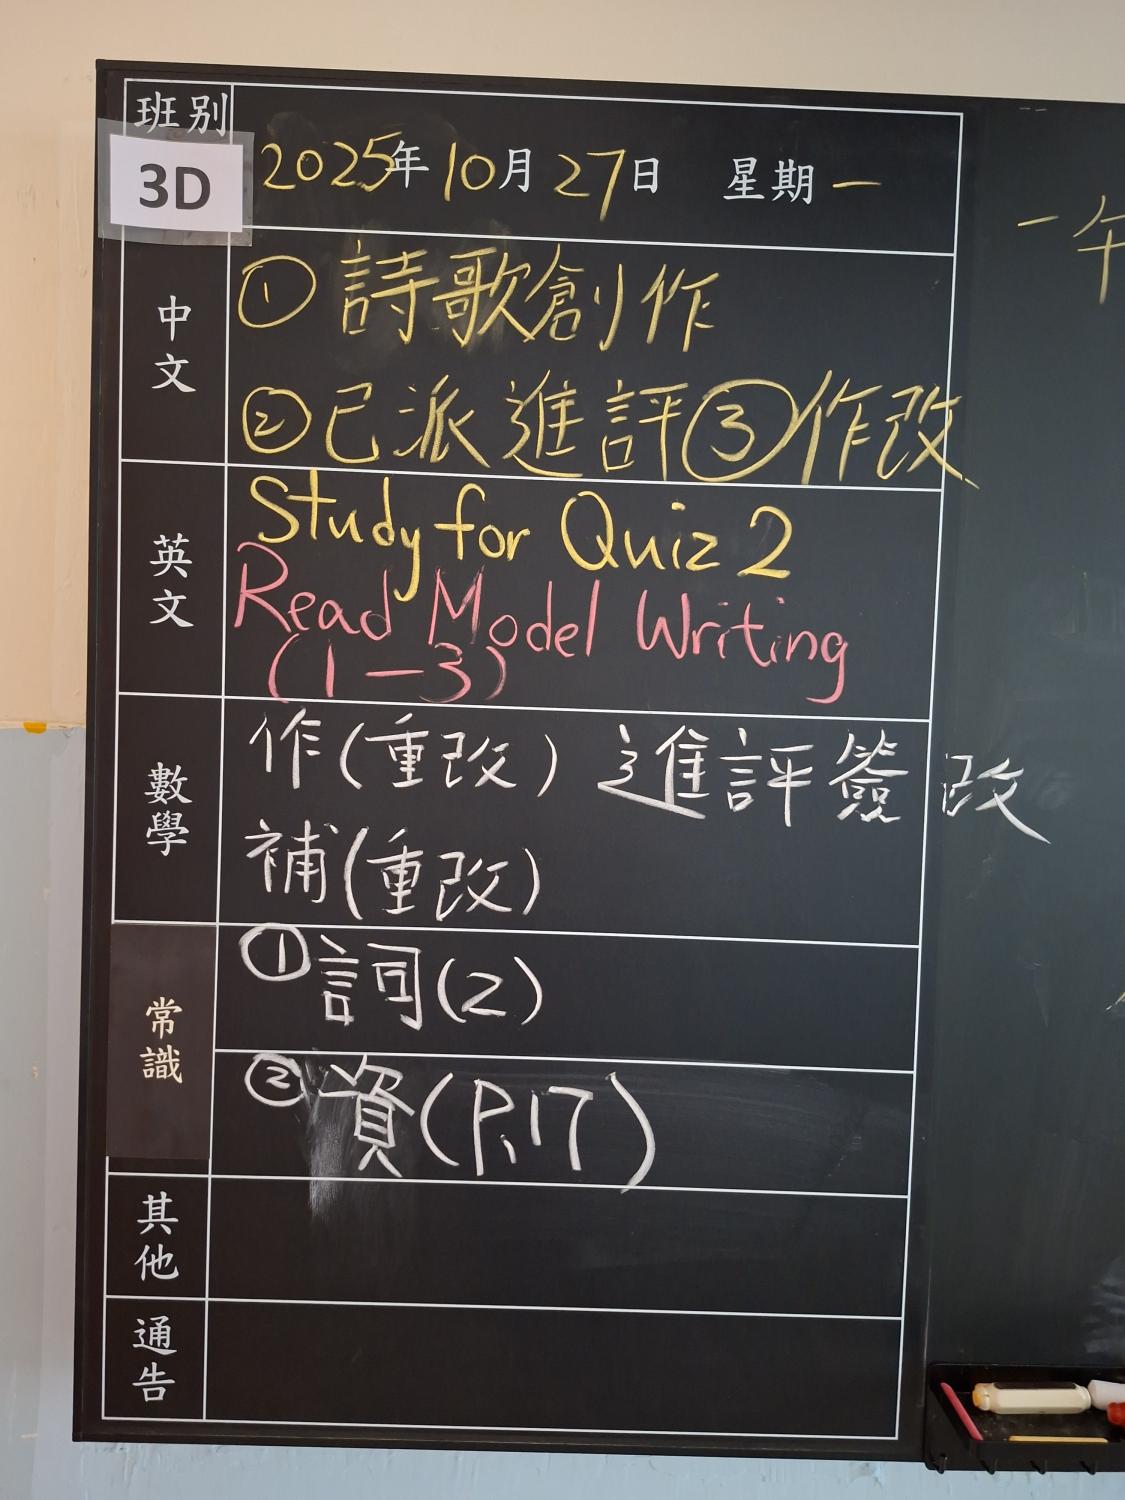 班別
3D
2025年10月27日 星期一
中文
① 詩歌創作
② 已派進評③作改
英文
Study for Quiz 2
Read Model Writing
(1-3)
數學
作(重改) 進評簽改
補(重改)
常識
① 詞(2)
② 資(P.17)
其他
通告